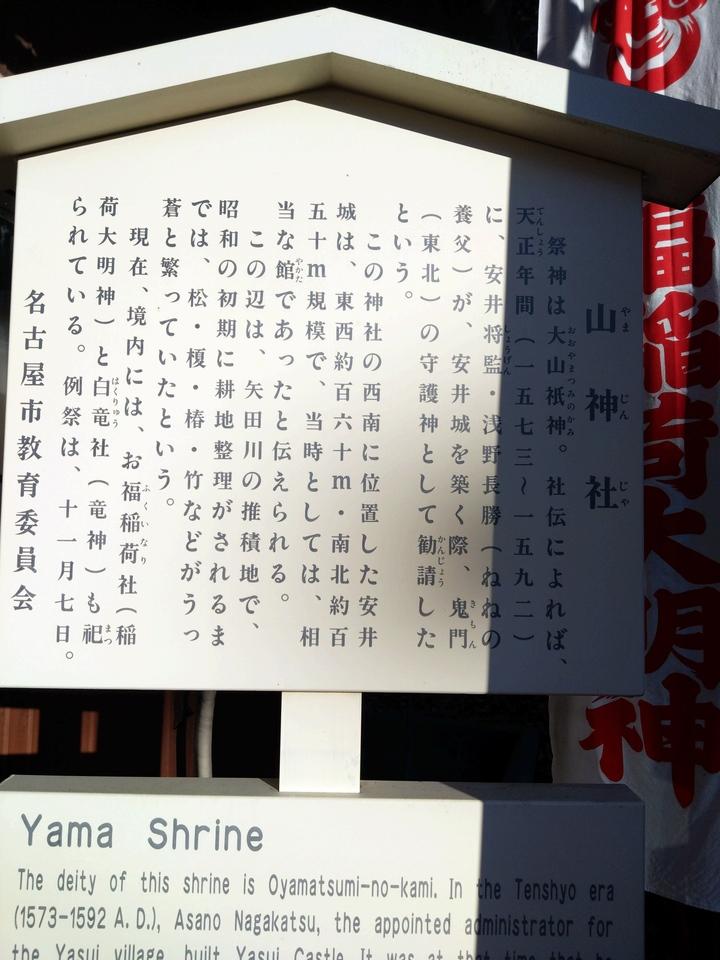 山神社
祭神は大山祇神。社伝によれば、
天正年間（一五七三～一五九二）
に、安井将監・浅野長勝（ねねの
養父）が、安井城を築く際、鬼門
（東北）の守護神として勧請した
という。
この神社の西南に位置した安井
城は、東西約百六十m・南北約百
五十m規模で、当時としては、相
当な館であったと伝えられる。
この辺は、矢田川の推積地で、
昭和の初期に耕地整理がされるま
では、松・榎・椿・竹などがうっ
蒼と繁っていたという。
現在、境内には、お福稲荷社（稲
荷大明神）と白竜社（竜神）も祀
られている。例祭は、十一月七日。
名古屋市教育委員会
Yama Shrine
The deity of this shrine is Oyamatsumi-no-kami. In the Tenshyo era
(1573-1592 A.D.), Asano Nagakatsu, the appointed administrator for
the Yasui village, built Yasui Castle. It was at that time that he
稲荷大明神